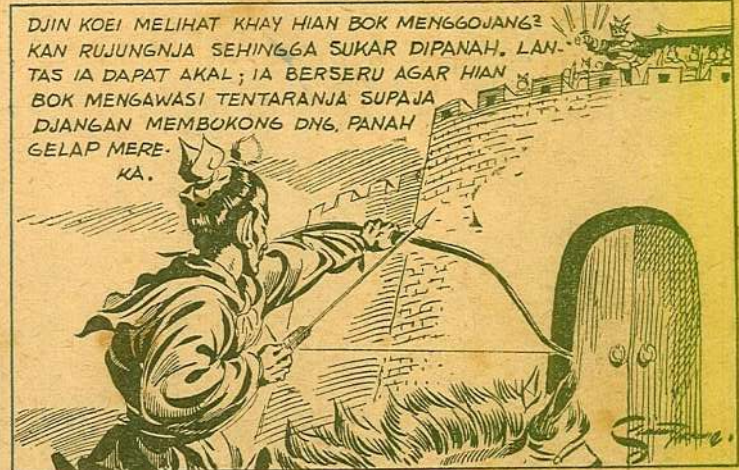 DJIN KOEI MELIHAT KHAY HIAN BOK MENGGOJANG2
KAN RUJUNGNJA SEHINGGA SUKAR DIPANAH. LAN-
TAS IA DAPAT AKAL; IA BERSERU AGAR HIAN
BOK MENGAWASI TENTARANJA SUPAJA
DJANGAN MEMBOKONG DNG. PANAH
GELAP MERE-
KA.